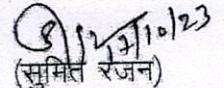 27/10/23
(सुमित रंजन)